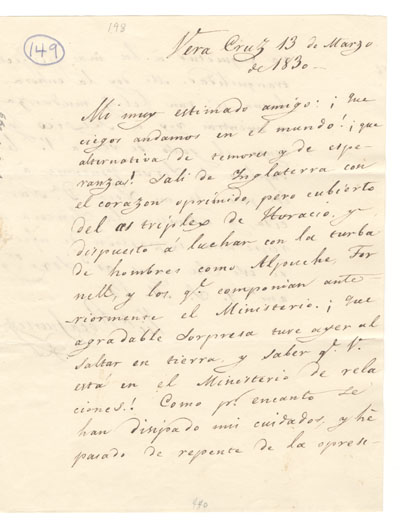 198
149
Vera Cruz 13 de Marzo
de 1830
Mi muy estimado amigo: ¡ Que
ciegos andamos en el mundo! ¡ que
alternativa de temores y de espe-
ranzas! Sali de Inglaterra con
el corazon oprimido, pero cubierto
del as triplex de Horacio, y
dispuesto á luchar con la turba
de hombres como Alpuche, Tor
nell, y los q.e componian ante
riormente el Ministerio. ¡ Que
agradable sorpresa tuve ayer al
saltar en tierra, y saber q.e V.
está en el Ministerio de rela
ciones! Como p.r encanto se
han disipado mis cuidados, y hé
pasado de repente de la opresi-